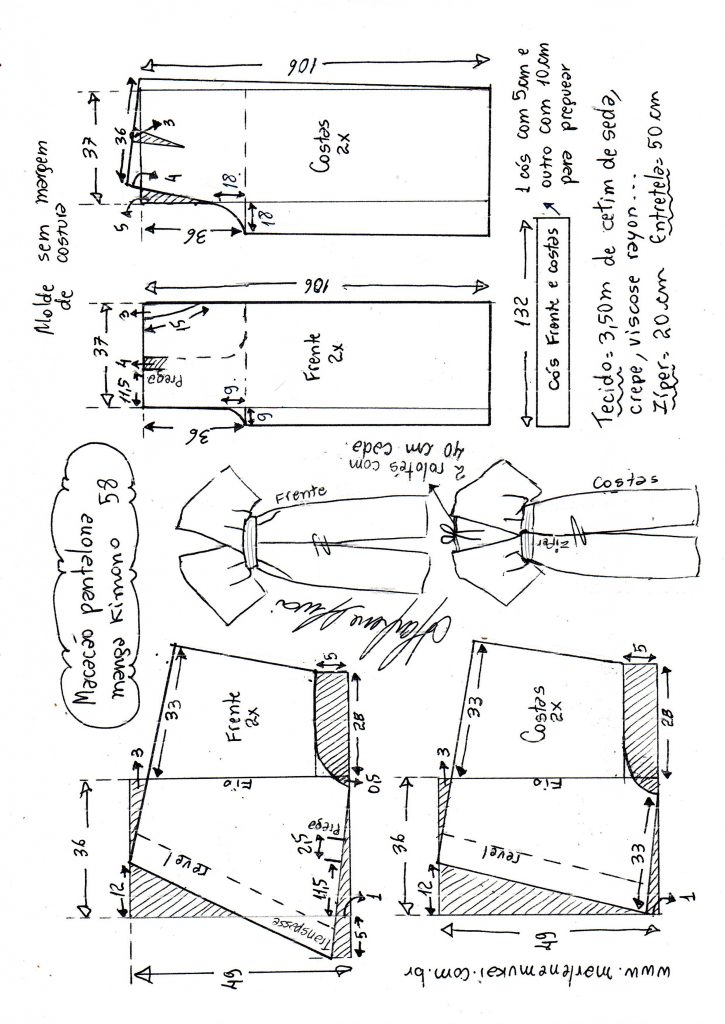 Macacão pantalona
manga Kimono 58
Molde sem margem
de costura
36
12
3
33
Frente
2x
Fio
revel
Transpasse
49
11,5
2,5
Prega
5
1
0,5
28
5
36
12
3
33
Costas
2x
Fio
revel
49
33
1
28
5
www.marlenemukai.com.br
Frente
2 rolotés com
40 cm cada.
Costas
Zíper
37
11,5
4
Prega
3
15
36
9
9
Frente
2x
106
37
36
5
4
3
36
18
18
Costas
2x
106
132
cós Frente e costas
1 cós com 5cm e
outro com 10cm
para preguear
Tecido= 3,50m de cetim de seda,
crepe, viscose rayon...
Zíper= 20cm Entretela= 50cm